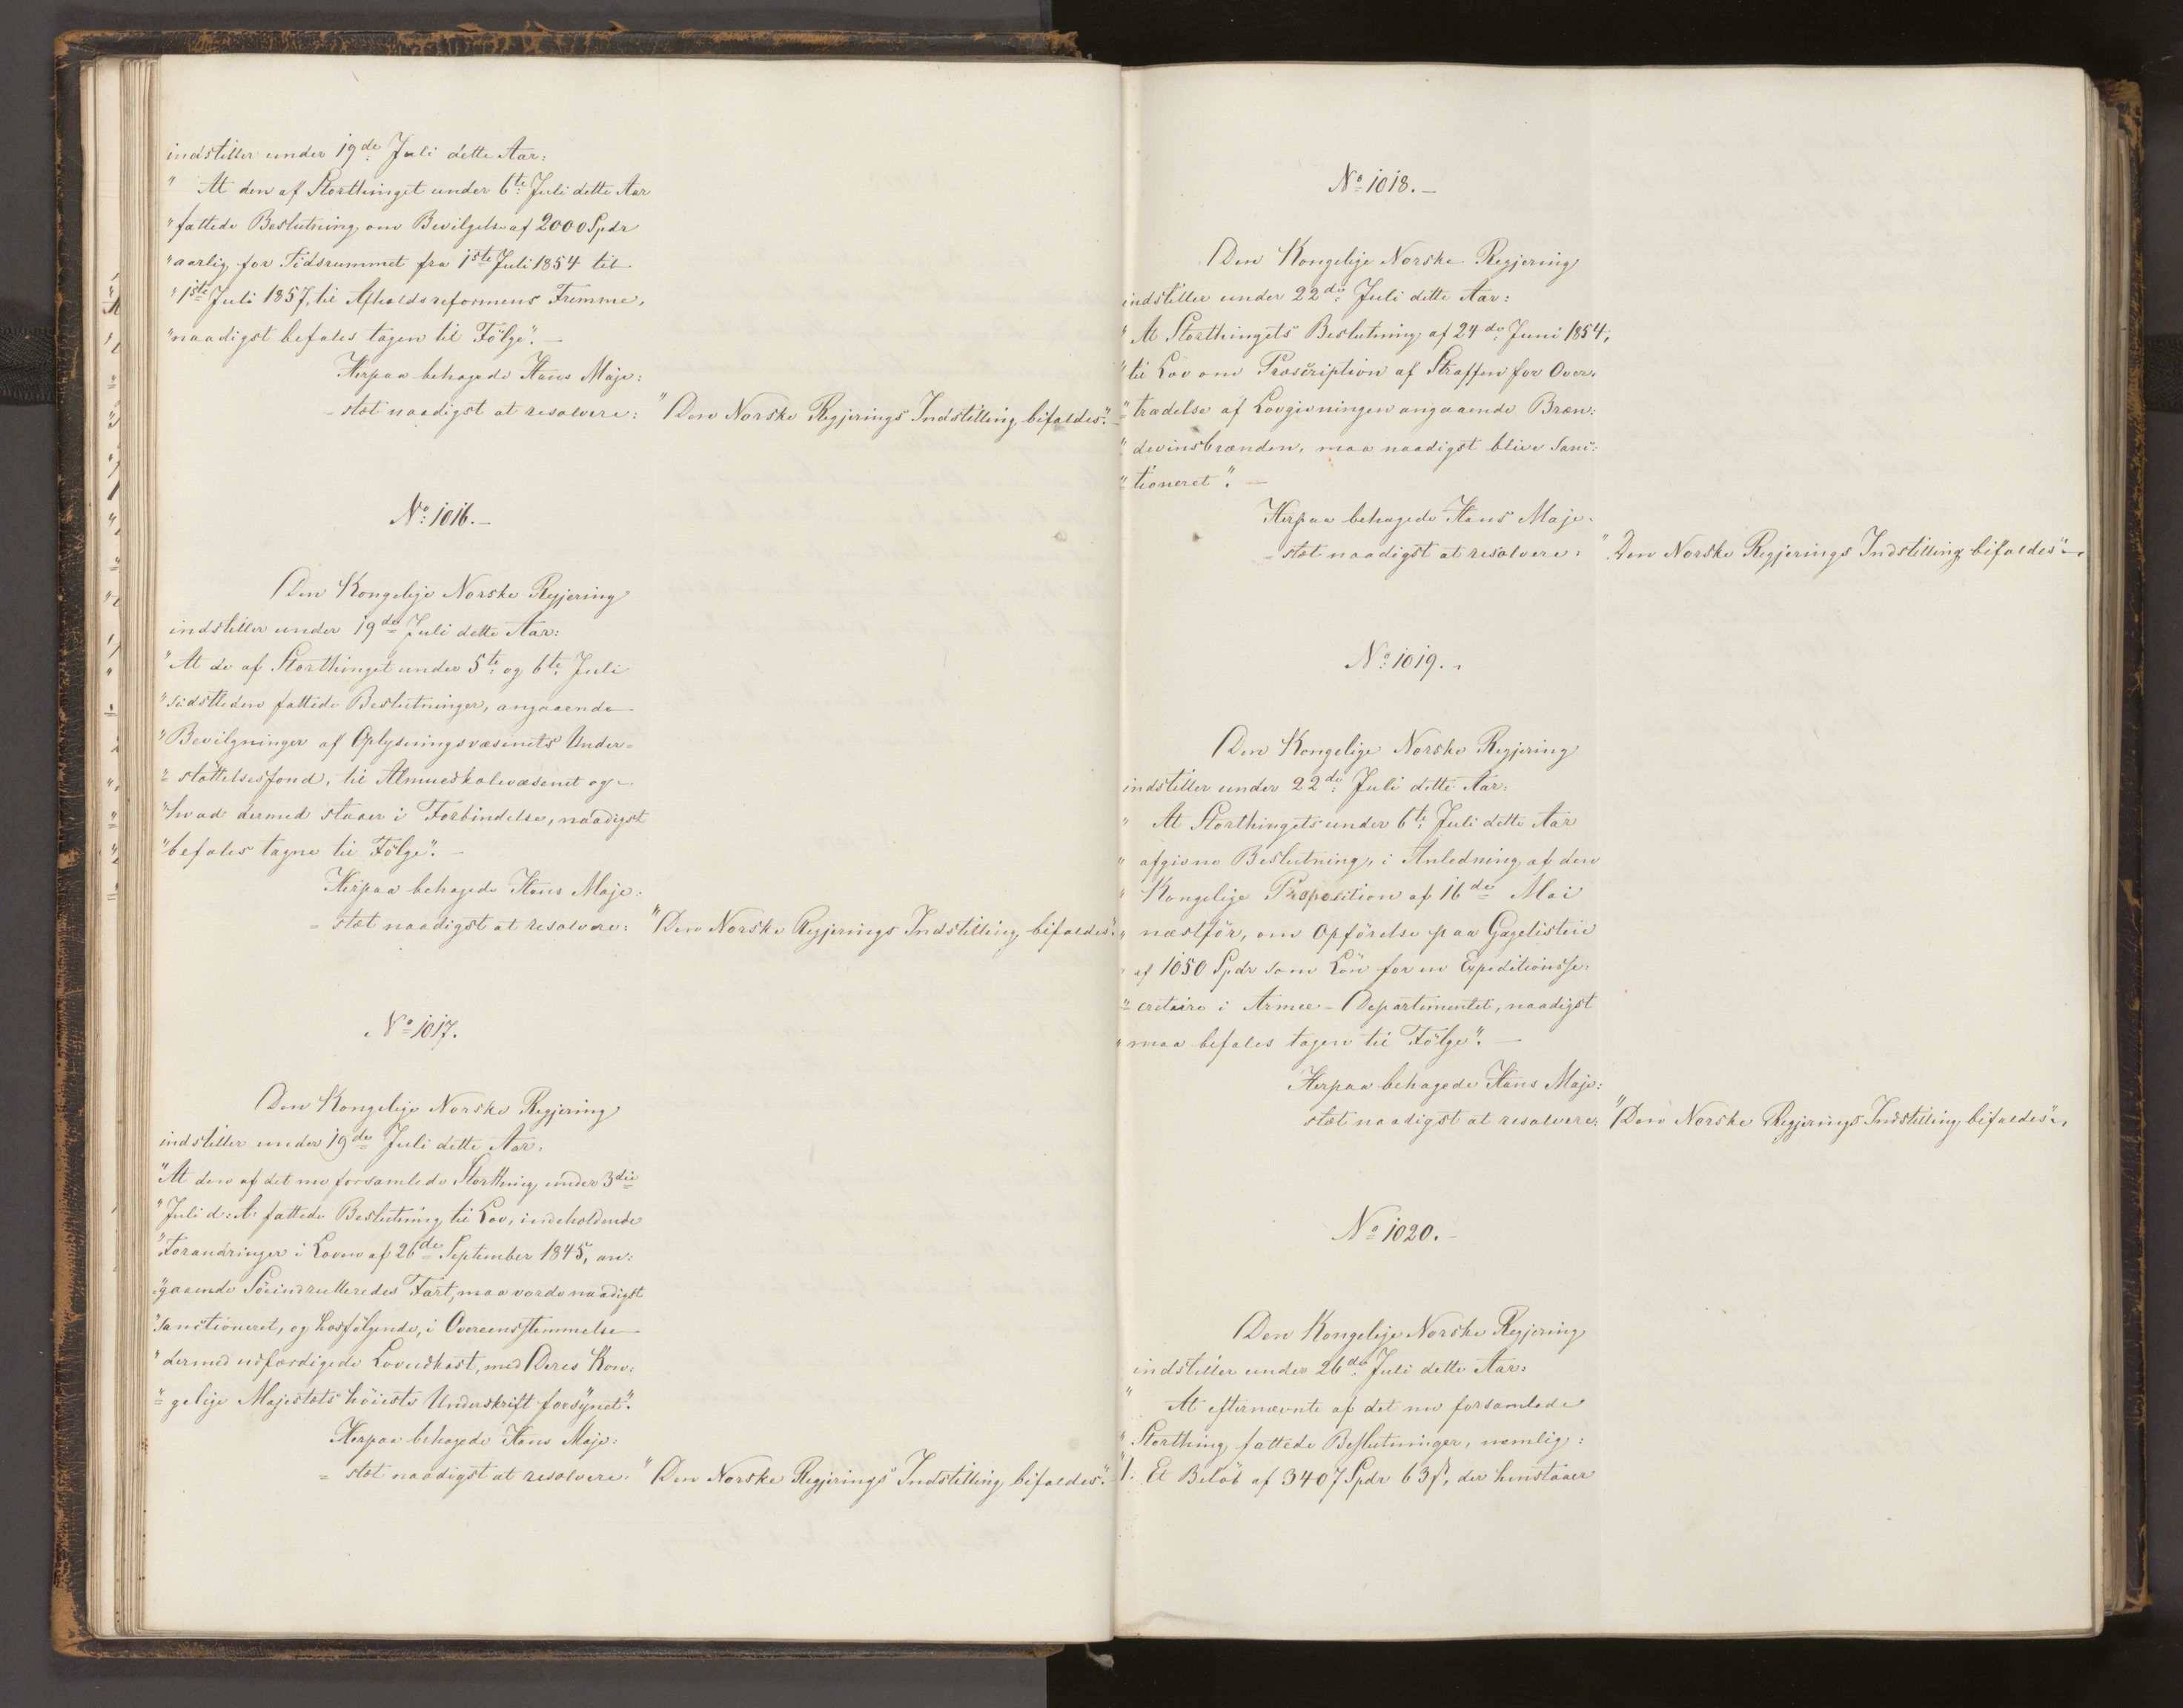 indstiller under 19de Juli dette Aar:
" At den af Storthinget under 6te Juli dette Aar
" fattede Beslutning om Bevilgelse af 2000 Spdr
" aarlig for Tidsrummet fra 1ste Juli 1854 til
" 1ste Juli 1857, til Afholdsreformens Fremme,
" naadigst befales tagen til Følge". —
Herpaa behagede Hans Maje:
= stæt naadigst at resolvere: "Den Norske Regjerings Indstilling bifaldes". —
No: 1016. —
Den Kongelige Norske Regjering
indstiller under 19de Juli dette Aar:
" At de af Storthinget under 5te og 6te Juli
" sidstleden fattede Beslutninger, angaaende
" Bevilgninger af Oplysningsvæsenets Under=
" støttelsesfond, til Almueskolevæsenet og
" hvad dermed staaer i Forbindelse, naadigst
" befales tagne til Følge". —
Herpaa behagede Hans Maje:
= stæt naadigst at resolvere: "Den Norske Regjerings Indstilling bifaldes".
No 1017.
Den Kongelige Norske Regjering
indstiller under 19de Juli dette Aar:
" At den af det nu forsamlede Storthing under 3die
" Juli d: A: fattede Beslutning til Lov, indeholdende
" Forandringer i Loven af 26de September 1845, an:
" gaaende Søindrulleredes Fart, maa vorde naadigst
" sanctioneret, og hosfølgende, i Overeensstemmelse
" dermed udfærdigede Lovudkast, med Deres Kon:
" gelige Majestæts høieste Underskrift forsynet".
Herpaa behagede Hans Maje:
= stæt naadigst at resolvere: "Den Norske Regjerings Indstilling bifaldes". —
No 1018. —
Den Kongelige Norske Regjering
indstiller under 22de Juli dette Aar:
" At Storthingets Beslutning af 24de Juni 1854,
" til Lov om Præscription af Straffen for Over:
" trædelse af Lovgivningen angaaende Bræn:
" deviinsbrænden, maa naadigst blive Sanc:
" tioneret". —
Herpaa behagede Hans Maje:
= stæt naadigst at resolvere: "Den Norske Regjerings Indstilling bifaldes". —
No: 1019. —
Den Kongelige Norske Regjering
indstiller under 22de Juli dette Aar:
" At Storthingets under 6te Juli dette Aar
" afgivne Beslutning, i Anledning af den
" Kongelige Proposition af 16de Mai
" næstfør, om Opførelse paa Gagelisten
" af 1050 Spdr som Løn for en Expeditionsse:
" cretaire i Armee=Departementet, naadigst
" maa befales tagen til Følge". —
Herpaa behagede Hans Maje:
stæt naadigst at resolvere: "Den Norske Regjerings Indstilling bifaldes".
No 1020. —
Den Kongelige Norske Regjering
indstiller under 26de Juli dette Aar:
" At efternævnte af det nu forsamlede
" Storthing fattede Beslutninger, nemlig:
" 1. Et Beløb af 3407 Spdr 63 ß, der henstaaer